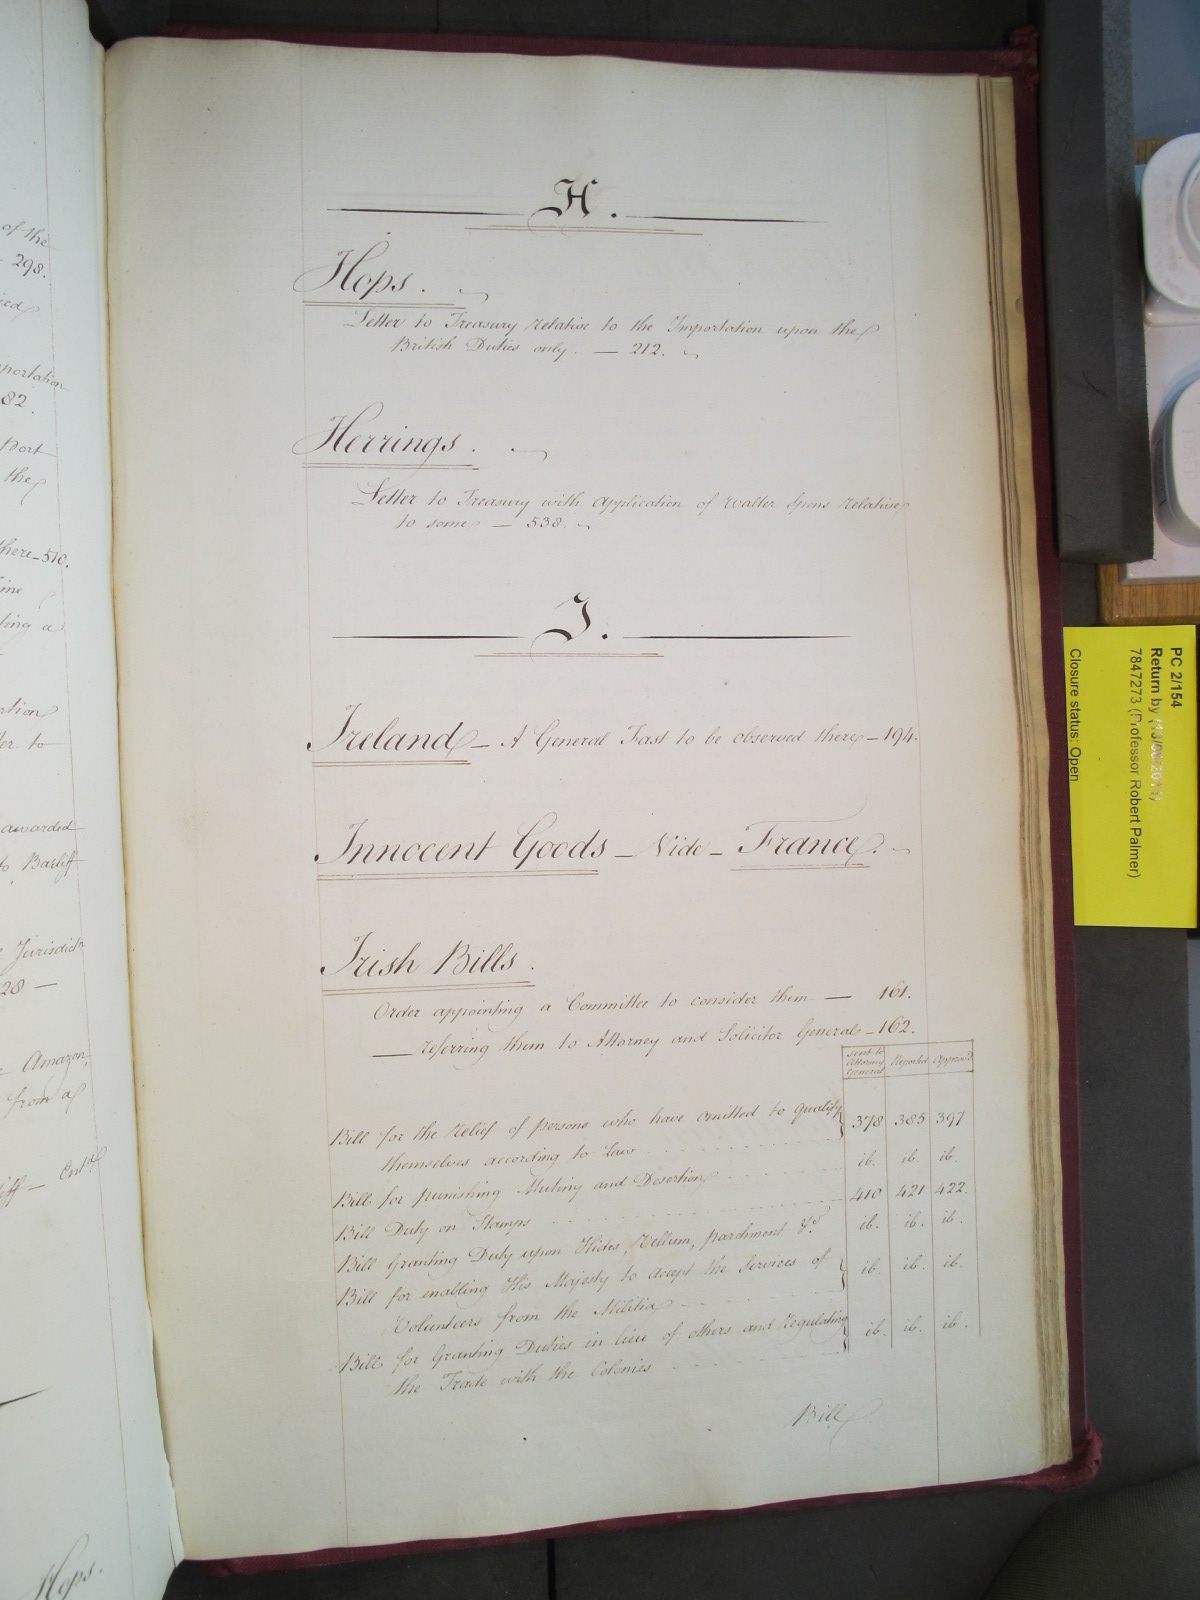 of the
298.
portation
82.
Port
the
here_510.
ting a
ter to
awarded
to Bailiff
Jurisdictn
28 —
Amazon,
from a
Hops.
H.
Hops.
Letter to Treasury relative to the Importation upon the
British Duties only. — 212.
Herrings.
Letter to Treasury with Application of Walter Spens relative
to some — 538.
I.
Ireland — A General Fast to be observed there — 194.
Innocent Goods — Vide — France.
Irish Bills.
Order appointing a Committee to consider them — 161.
— referring them to Attorney and Solicitor General — 162.
Sent to Attorney General Reported Approved
Bill for the relief of persons who have omitted to qualify 378 385 397
themselves according to Law
Bill for punishing Mutiny and Desertion ib. ib. ib.
Bill Duty on Stamps 410 421 422.
Bill Granting Duty upon Hides, Vellum, parchment &c. ib. ib. ib.
Bill for enabling His Majesty to accept the Services of ib. ib. ib.
Volunteers from the Militia
Bill for Granting Duties in lieu of others and regulating ib. ib. ib.
the Trade with the Colonies
Bill
PC 2/154
Return by (13/08/2011)
7847273 (Professor Robert Palmer)
Closure status: Open